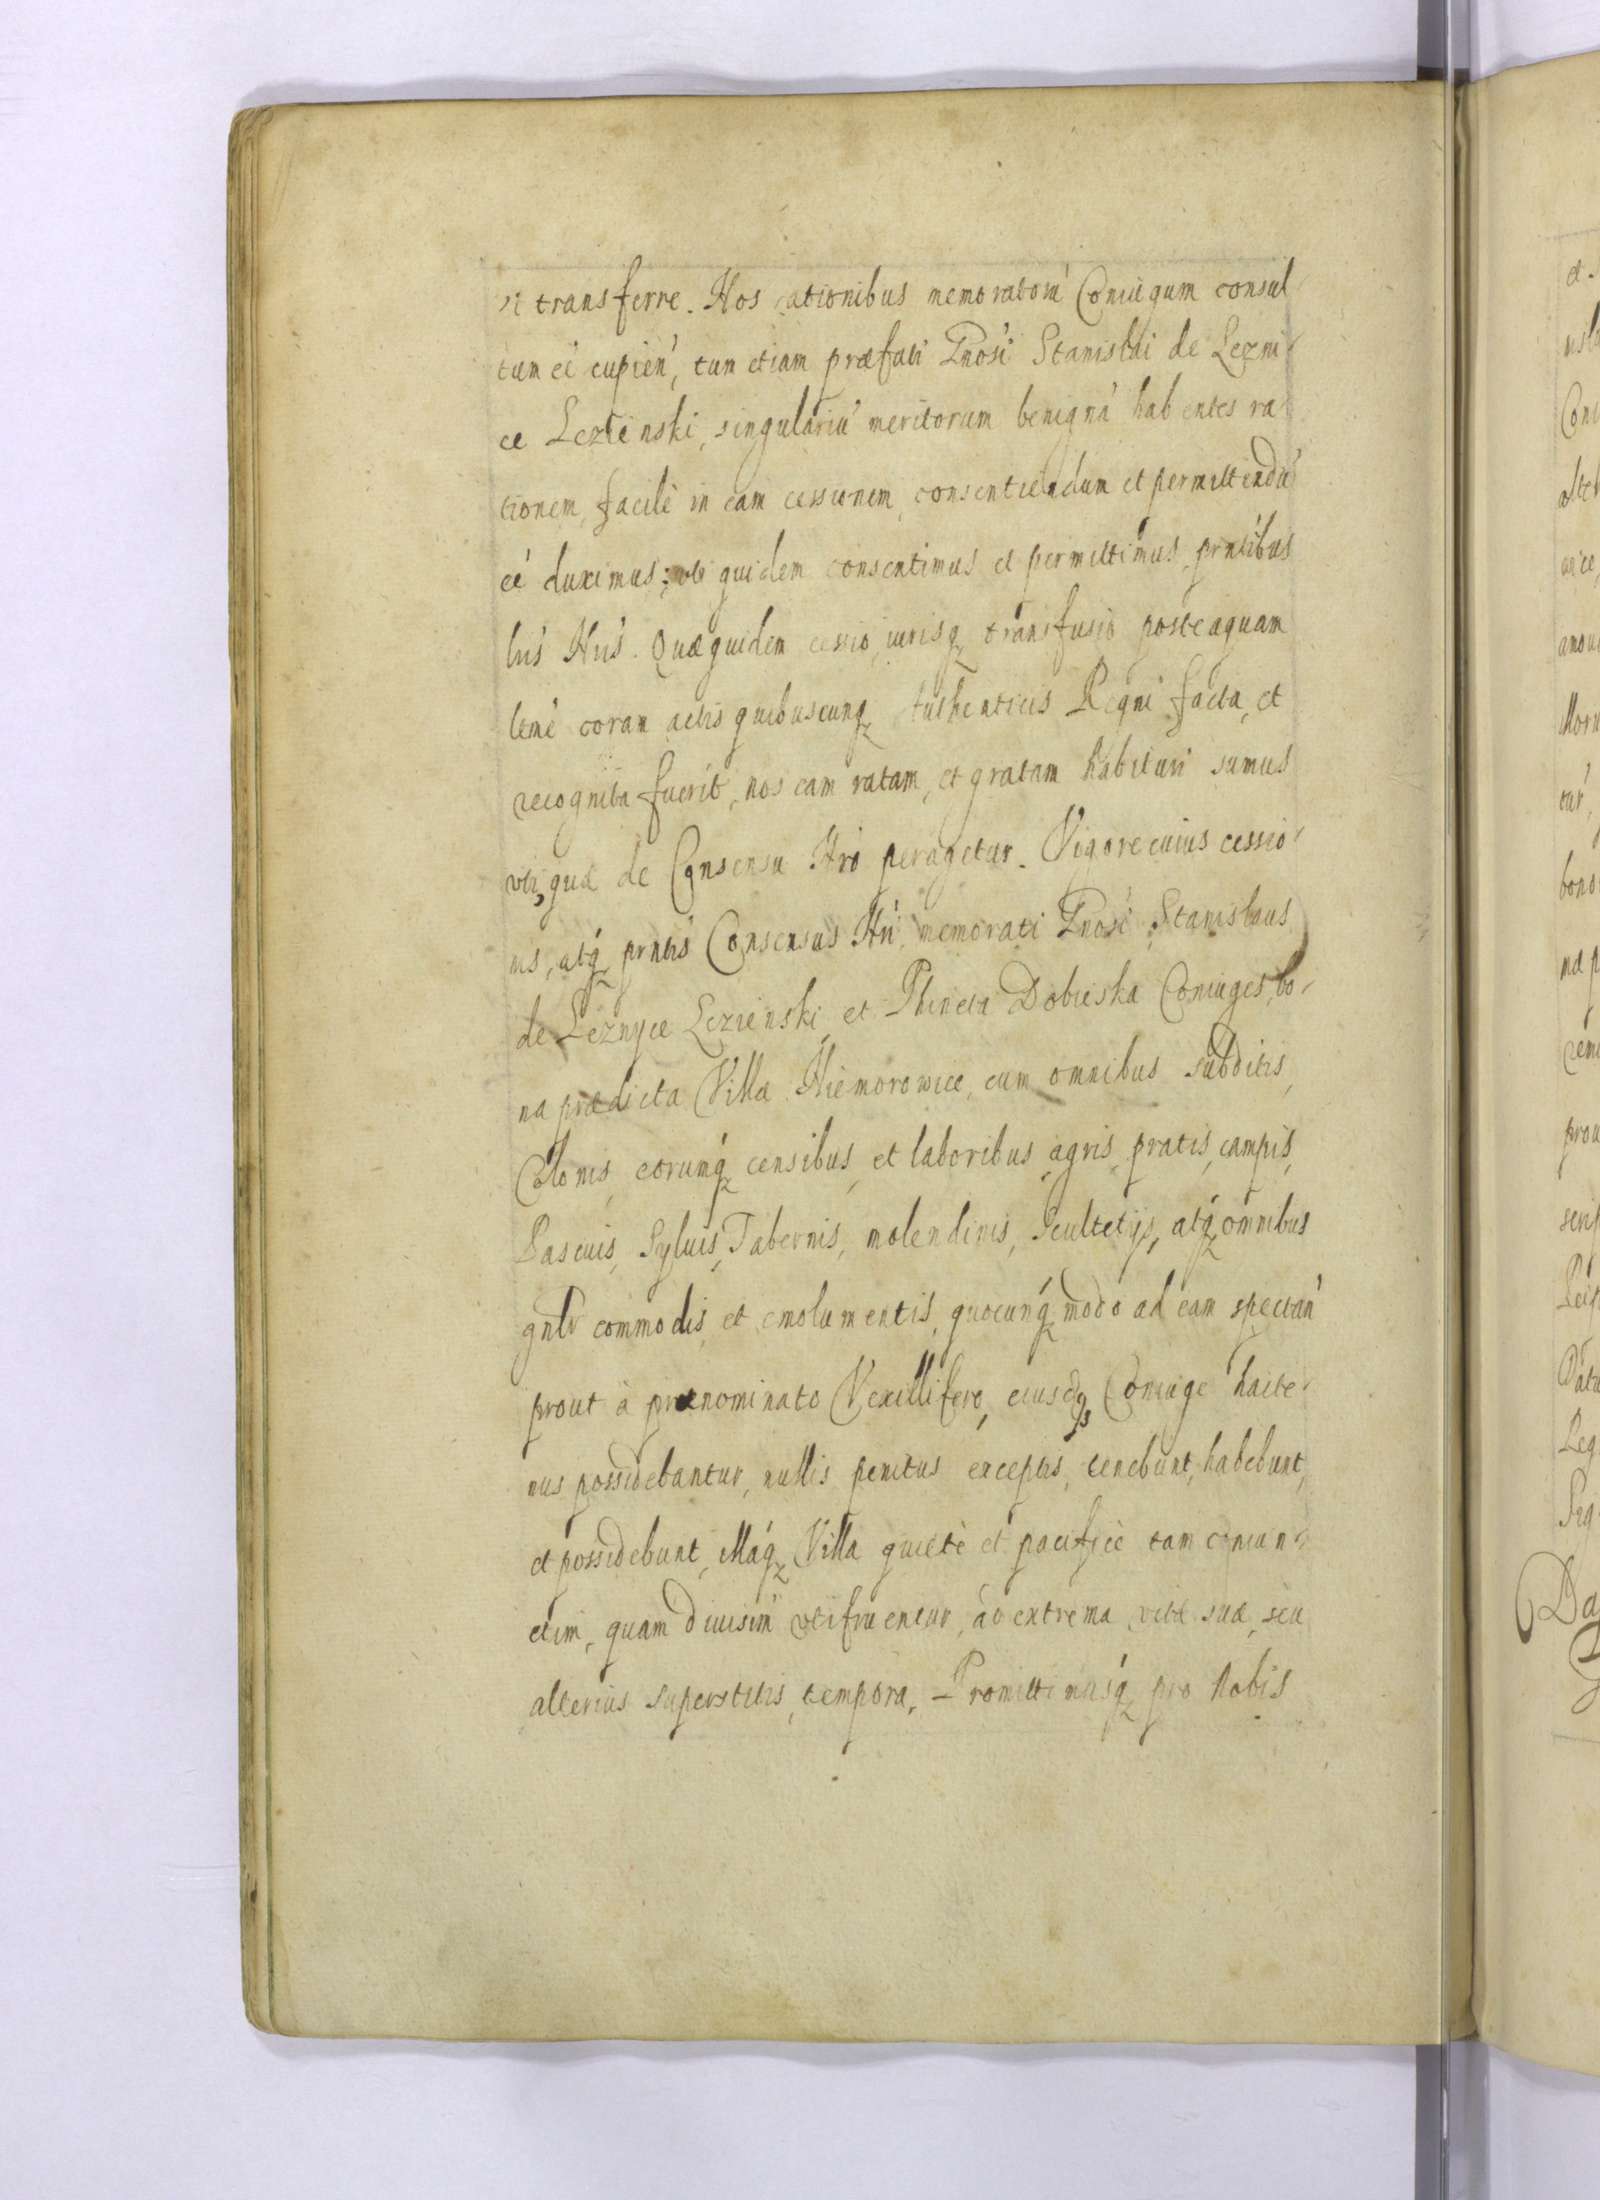 si transferre. Nos rationibus memoratorú Coniugum consul-
tum eé cupien', tum etiam præfati Gnosi Stanislai de Lezni-
ce Lezienski, singulariú meritorum benigná habentes ra-
tionem, facilè in eam cessionem, consentiendum et permittendú
eé duximus; uti quidem consentimus et permittimus, pntibus
lris Nris. Quæ quidem cessio, iurisq transfusio posteaquam
lemé coram actis quibuscunq Authenticis Regni facta, et
recognita fuerit, nos eam ratam, et gratam habituri sumus
uti, quæ de Consensu Nro peragetur. Vigore cuius cessio-
nis, atq pntis Consensus Nri, memorati Gnosi Stanislaus
de Leznyce Lezienski, et Dobieska Coniuges, bo-
na prædicta Villæ Niemorowice, cum omnibus subditis,
Colonis, eorumq censibus, et laboribus, agris, pratis, campis,
Pascuis, Syluis, Tabernis, molendinis, Scultetijs, atq omnibus
gnlr commodis, et emolumentis, quocunq modo ad eam spectan'
prout à prænominato Vexillifero, eiusdq Coniuge hacte-
nus possidebantur, nullis penitus exceptis, tenebunt, habebunt,
et possidebunt, illáq Villa quietè et pacificè tam coniun-
ctim, quam diuisim utifruentur, ad extrema vitæ suæ, seu
alterius superstitis, tempora. Promittimusq pro Nobis
a.
Conu
alter
amou
bono
prou
Datu
Reg
Sig
Da